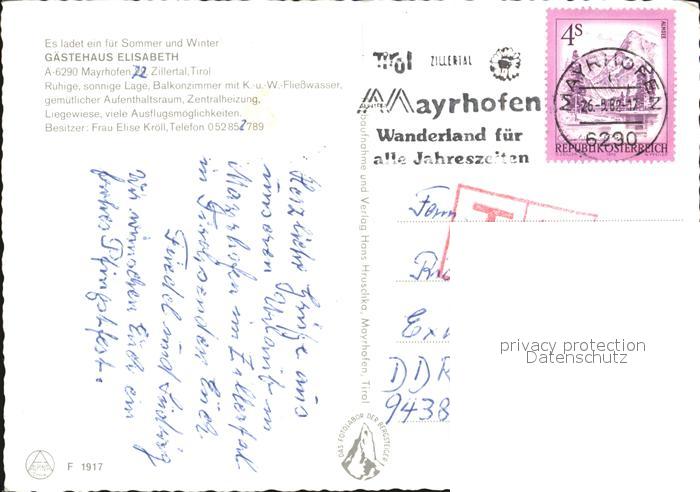 Es ladet ein für Sommer und Winter
GÄSTEHAUS ELISABETH
A-6290 Mayrhofen 22 Zillertal, Tirol
Ruhige, sonnige Lage, Balkonzimmer mit K.-u.-W.-Fließwasser,
gemütlicher Aufenthaltsraum, Zentralheizung,
Liegewiese, viele Ausflugsmöglichkeiten.
Besitzer: Frau Elise Kröll, Telefon 052852789
Tirol ZILLERTAL
Mayrhofen
Wanderland für
alle Jahreszeiten
4S
ALMSEE
MAYRHOFEN
6290
REPUBLIK ÖSTERREICH
Herzliche Grüße aus
unserem Urlaub in
Mayrhofen im Zillertal
in Tirol senden Euch
Friedel und Ludwig
Wir wünschen Euch ein
frohes Pfingstfest.
Hans Hruschka, Mayrhofen, Tirol
DAS FOTOLABOR DER BERGSTEIGER
Fam
DDR
9438
T
F 1917
privacy protection
Datenschutz